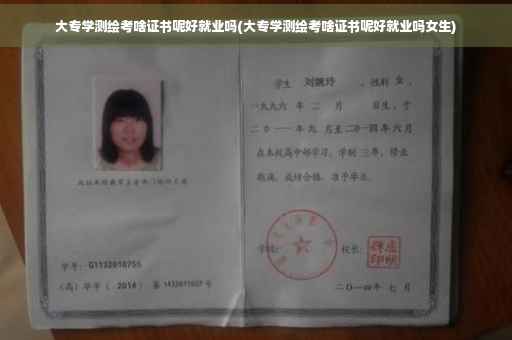 大专学测绘考啥证书呢好就业吗(大专学测绘考啥证书呢好就业吗女生)
学生 刘婉玲 ，性别 女 ，
一九九六 年 二 月 日生，于
二〇一一 年 九 月至 二〇一四 年 六 月
在本校高中部学习，学制 三 年，修业
期满，成绩合格，准予毕业。
学校： 校长：
二〇一四 年 七 月
学号： G1132010755
（高）毕字（ 2014 ）第 1432011027 号